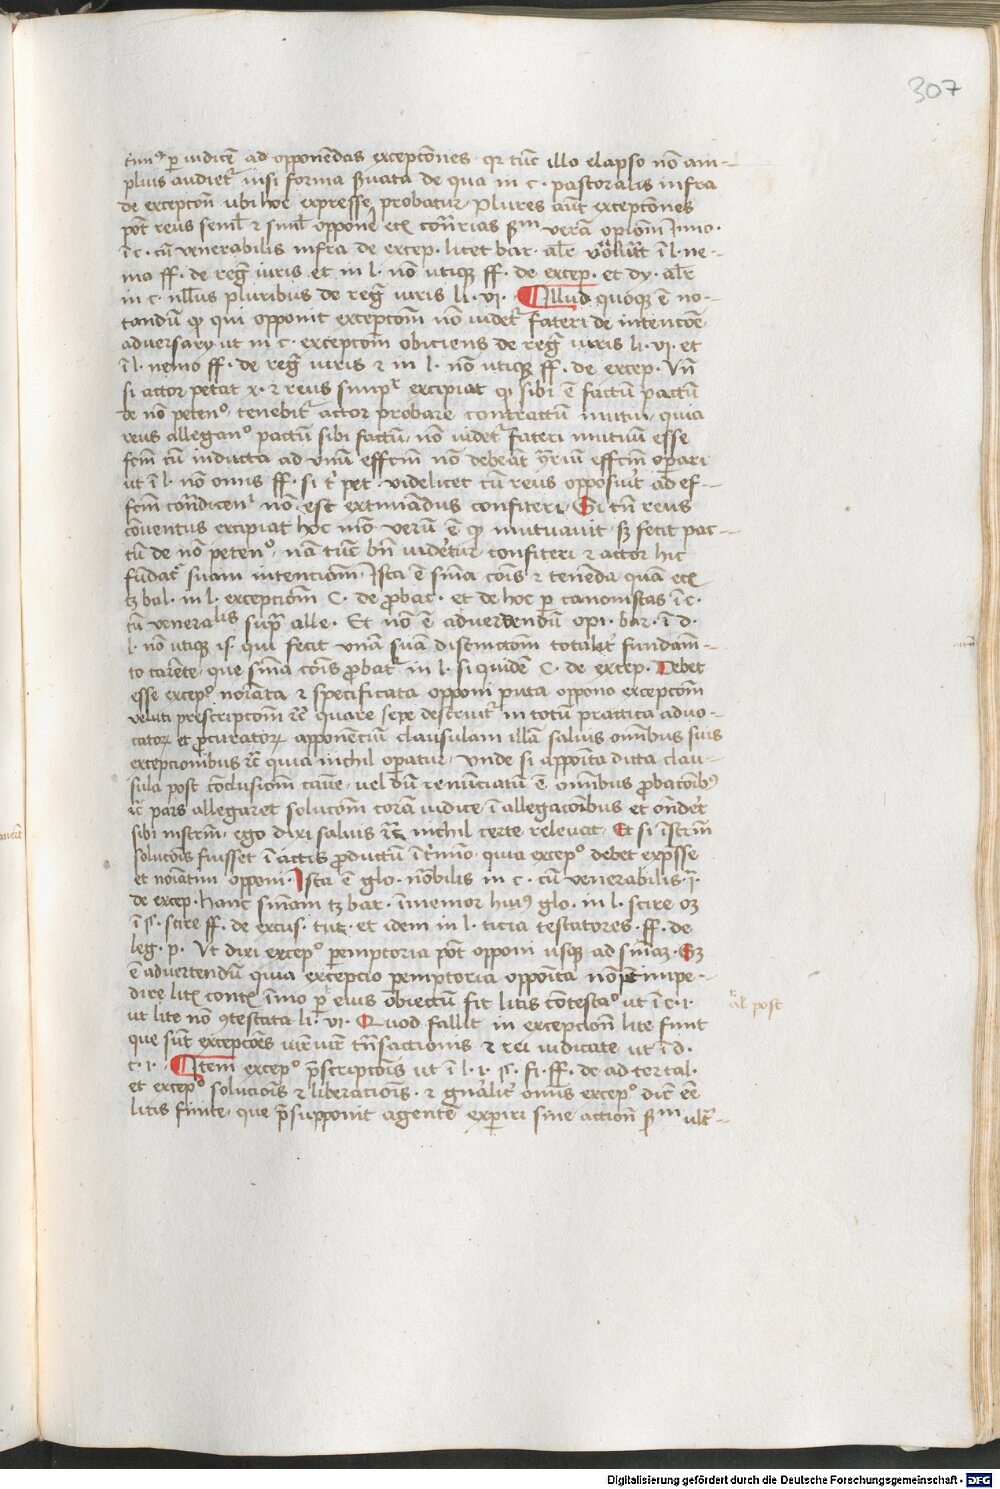 307
timꝰ ꝑ iudicē ad opponēdas exceptōnes · qꝛ tūc illo elapso nō am-
plius audietᷣ nisi forma ẜuata de qua in c · pastoralis infra
de exceptoñ ubi hoc expresse probatur · Plures aūt exceptōnes
pōt reus semel ⁊ simul opponē etc̄ cōtrias ẜm verā opiōm Inno ·
ī c · cū venerabilis infra de excep · licet bar · alr̄ voluit ī l · ne-
mo ff · de reḡ iuris et in l · nō utique ff · de excep · et dy · alr̄
in c · nullus pluribus de reḡ iuris li · vj · Illud quoque ē no-
tandū ꝙ qui opponit exceptōm nō videtᷣ fateri de intencōe
adversarij ut in c · exceptōm obiciens de reḡ iuris li · vj · et
ī l · nemo ff · de reḡ iuris ⁊ in l · nō utique ff · de excep · Vn̄
si actor petat x · ⁊ reus simpᷣ excipiat ꝙ sibi ē factū pactū
de nō petenº tenebitᷣ actor probare contractum mutui · quia
reus alleganº pactū sibi factū · nō videtᷣ fateri mutuum esse
fcm̄ cū inducta ad vnū effcm̄ nō debeāt ꝯriū effcm̄ operari
ut ī l · nō omnis ff · si c̄ pet · videlicet cū reus opposuit ad ef-
fcm̄ cōndicenᷣ nō est extimādus confiteri · Si tn̄ reus
cōventus excipiat hoc mō verū ē ꝙ mutuavit · sꝫ fecit pac-
tū de nō petenº · nā tūc bn̄ videtur confiteri ⁊ actor hic
fūdatᷣ suam intenciom̄ · Ista ē sm̄a cōis ⁊ tenēda quā etc̄
tꝫ bal · in l · excepciom̄ C · de ꝓbac · et de hoc ꝑ canonistas ī c ·
cū veneralis supra alle · Et nō ē advertendū opi · bar · ī d ·
l · nō utique is · qui fecit vnā suā distinctiom̄ totalit̄ fundam-
to carēte · que sm̄a cōis ꝓbatᷣ in l · si quidē C · de excep · Debet
esse excepº noīata ⁊ specificata opponi puta oppono exceptōm
veluti prescriptōm ⁊c̄ quare sepe destruitᷣ in totū practica advo-
catoꝝ et ꝓcuratoꝝ apponenciū clausulam illā salvis omnibus suis
excepcionibus ⁊c̄ quia nichil operatur · Unde si apposita dicta clau-
sula post cōclusiom̄ cause · vel dū renūciatū ē omnibus ꝓbacōibꝰ
⁊c̄ pars allegaret solucōm corā iudice · ī allegacōibus et ondet̄
sibi instrm̄ · ego dixi salvis ⁊c̄ nichil certe relevat · Et si īstrm̄
solucōis fuisset ī actis ꝓductū ī tᷣmīo · quia excepº debet exp̄sse
et noīatim opponi · Ista ē glo · nōbilis in c · cū venerabilis · j̄ ·
de excep · Hanc sm̄am tꝫ bar · īmemor huiꝰ glo · in l · scire oꝫ
ī § · scire ff · de excus · tut · et idem in l · ticia testatores · ff · de
leg · p · Ut dixi excepº peremptoria pōt opponi usque ad sm̄aꝫ · Sꝫ
ē advertendū quia excepcio peremptoria opposita nō pōt impe-
dire litꝭ contꝭ īmo ꝑ eius obiectū fit litis cōtestaº ut ī c · j ·
ut lite nō ꝯtestata li · vj · Quod fallit in excepcioñ lite finit
que sūt exceptōes trāsactionis ⁊ rei iudicate ut ī d ·
c · j · Item excepº p̄scriptōis ut ī l · j · § · fi · ff · de
et excepº solucōis ⁊ liberacōis · ⁊ gnālit̄ omīs excepº dicit̄ eē
litis finite · que p̄supponit agentē experiri sine actioñ ẜm ult̄-
al post
Digitalisierung gefördert durch die Deutsche Forschungsgemeinschaft · DFG